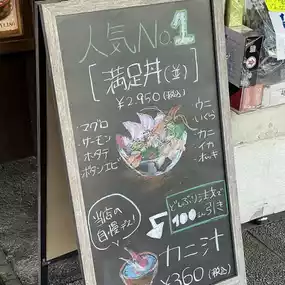 人気No.1
[満足丼(並)]
¥2,950(税込)
・マグロ
・サーモン
・ホタテ
・ボタンエビ
・ウニ
・いくら
・カニ
・イカ
・ホッキ
どんぶり注文で
100円引き
当店の
自慢デス!
カニ汁
¥360(税込)